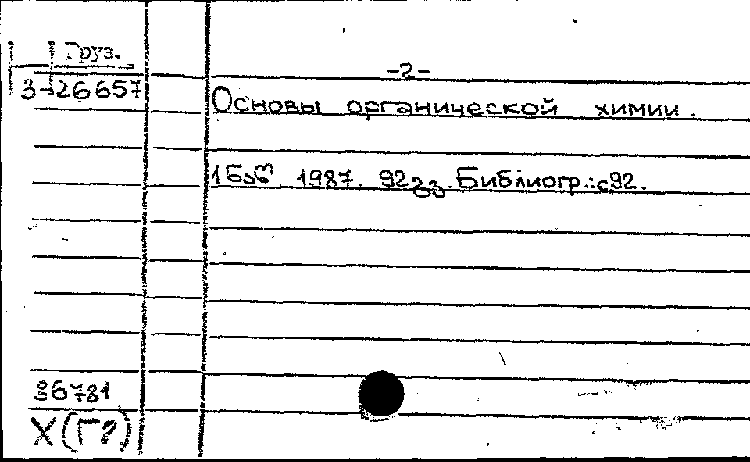 Груз.
3-26657
-2-
Основы органической химии.
1987. 92 გვ. Библиогр.: с92.
36781
X(Г2)